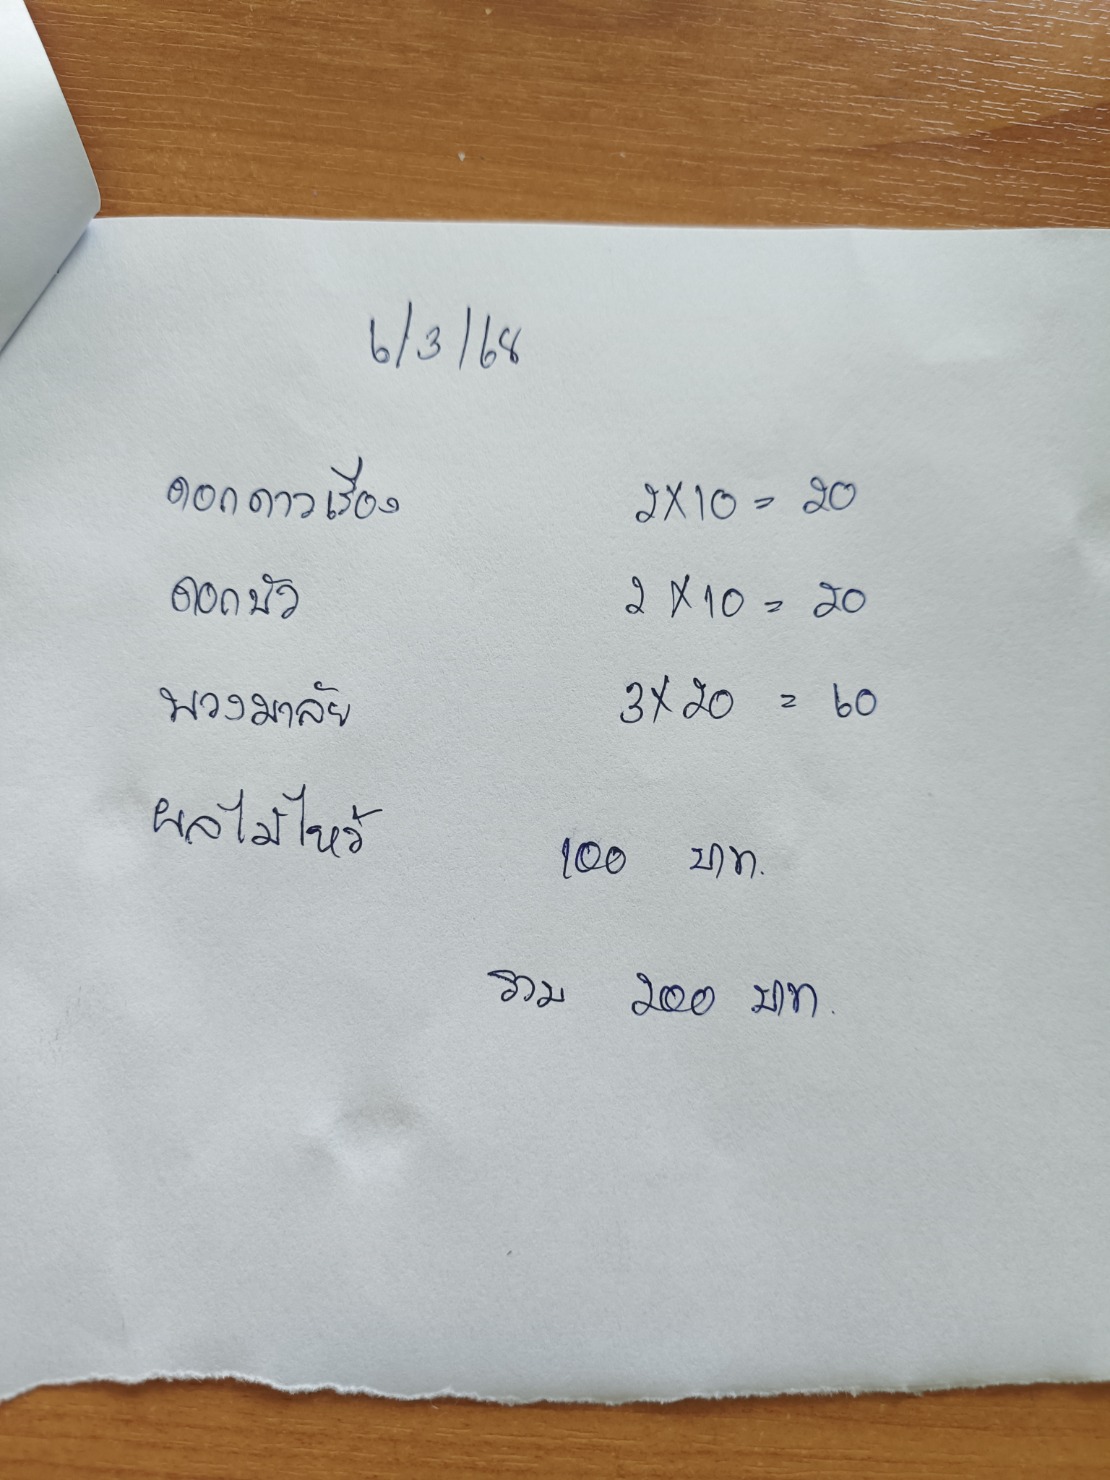 6/3/68
ดอกดาวเรือง 2X10 = 20
ดอกบัว 2 X 10 = 20
พวงมาลัย 3X20 = 60
ผลไม้ไหว้ 100 บาท.
รวม 200 บาท.